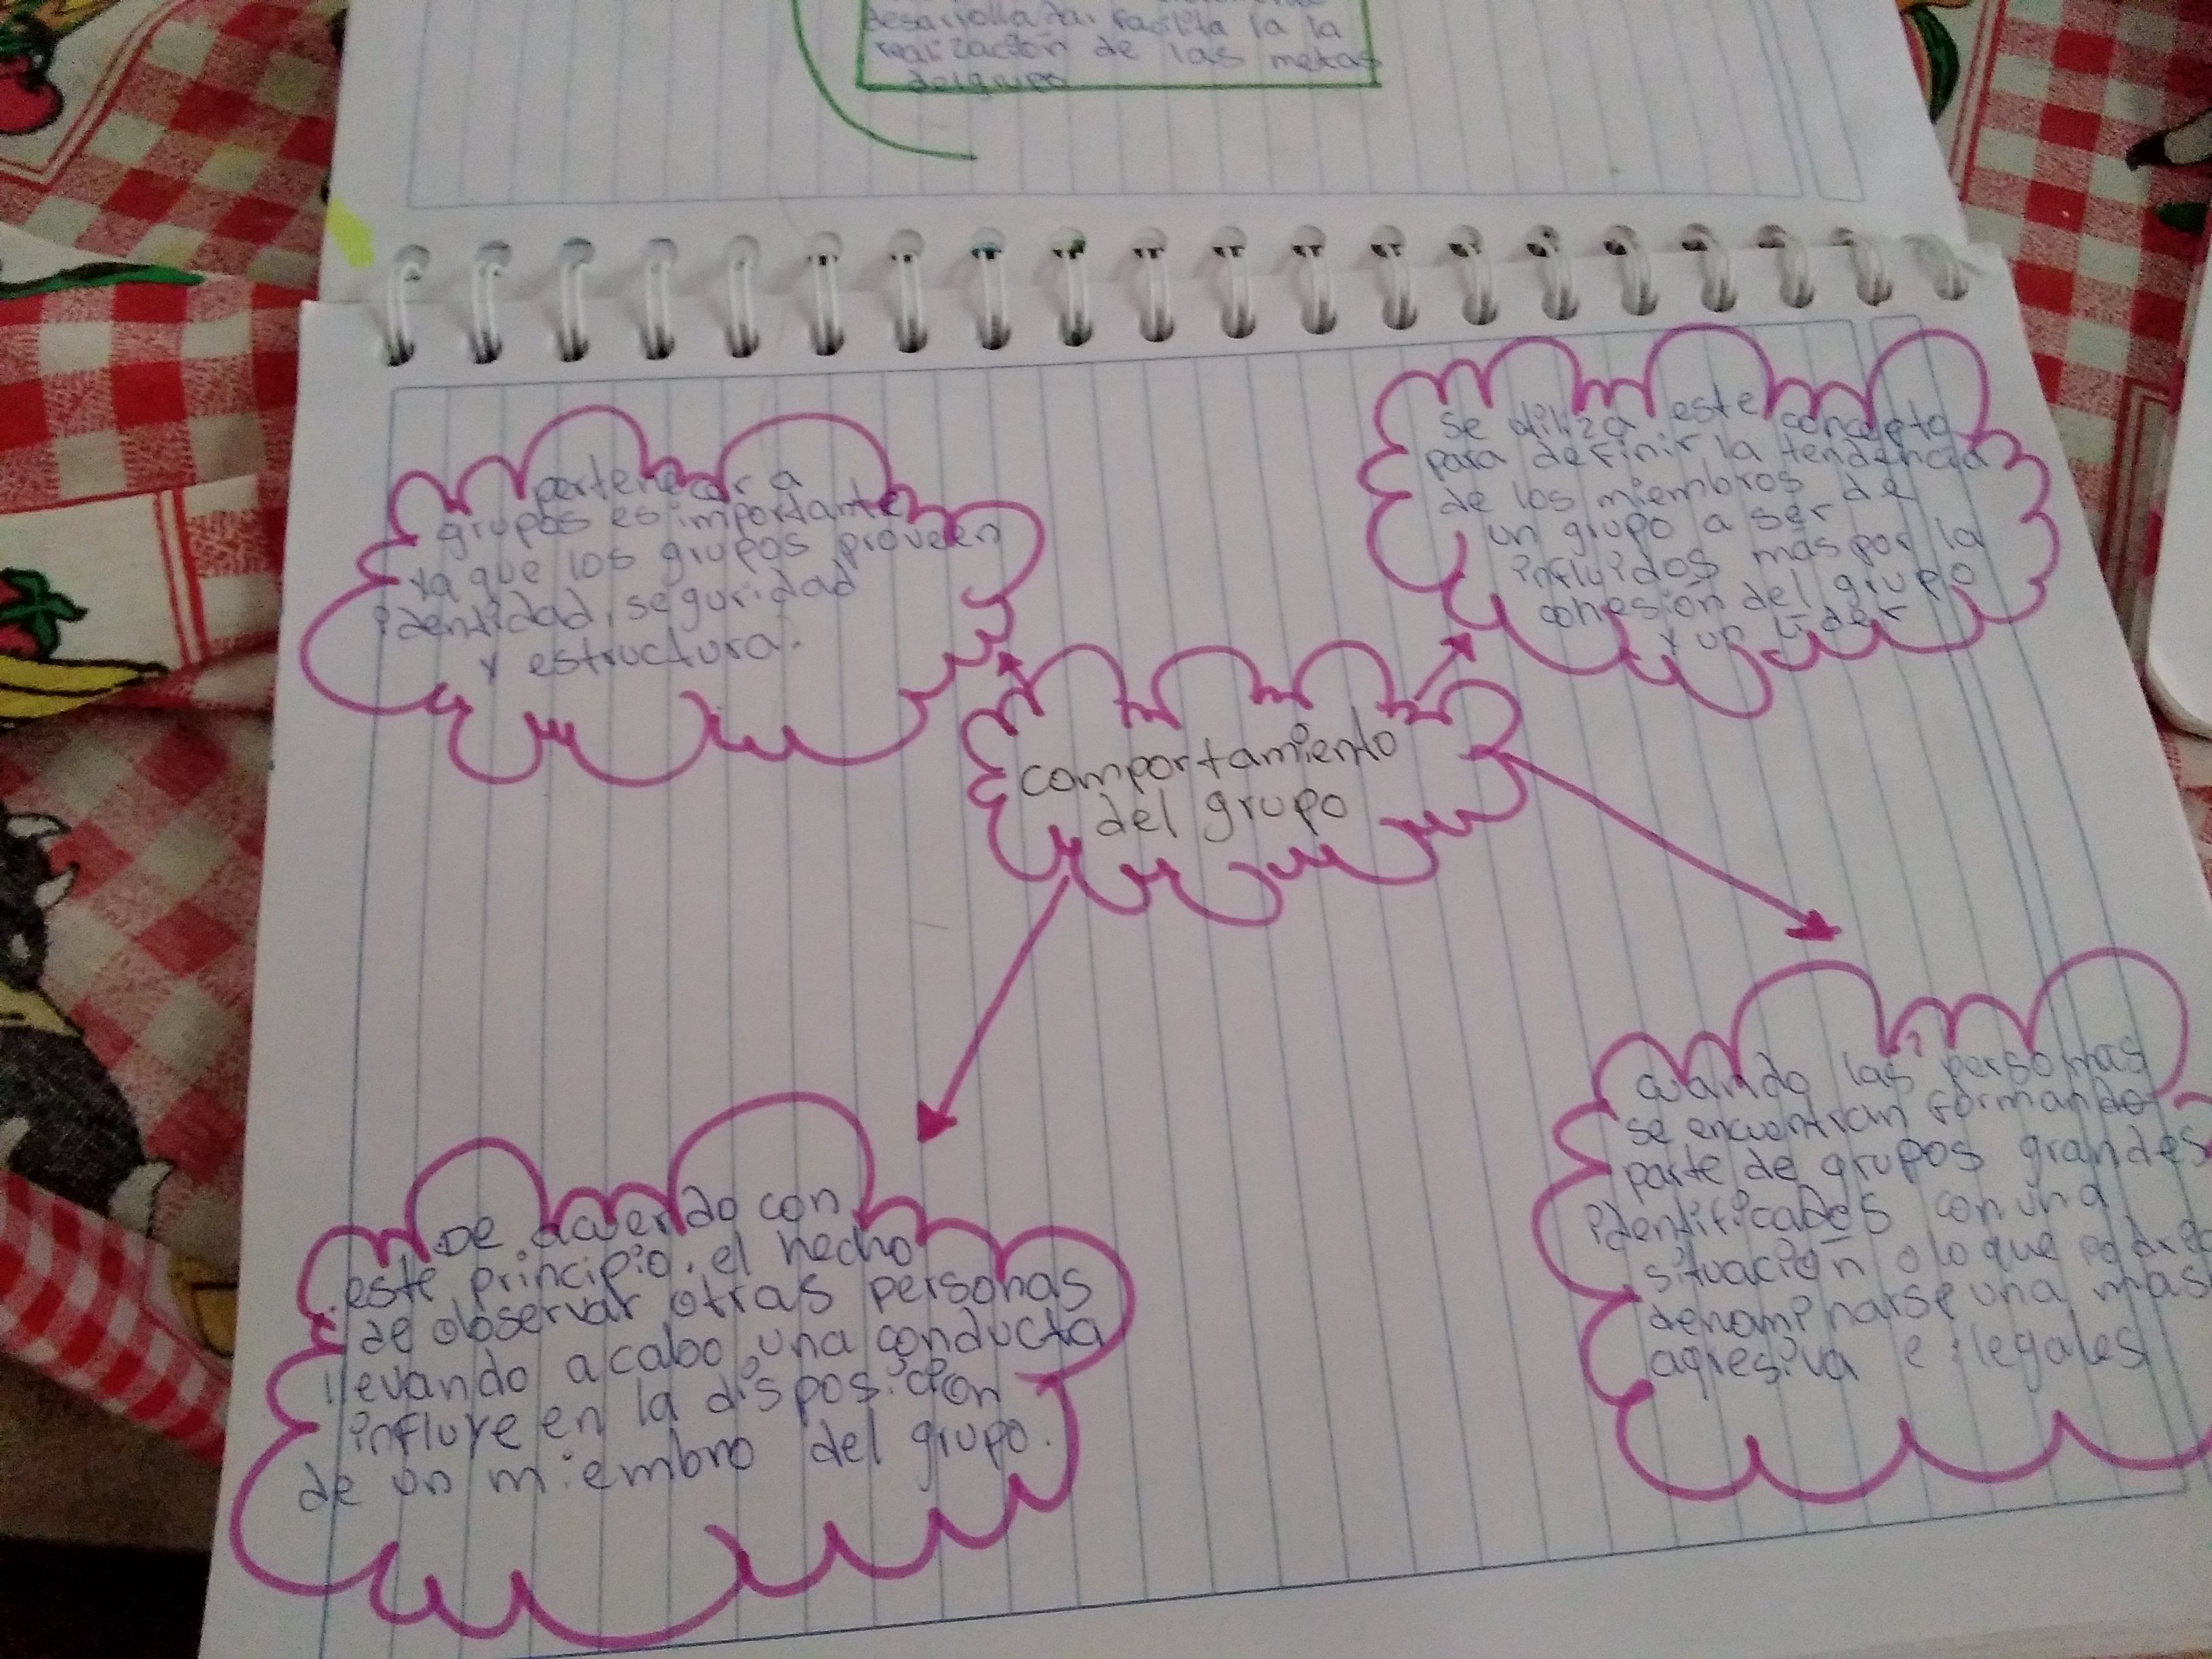 desarrollada, facilita la la
realización de las metas
del grupo
pertenecer a
grupos es importante
ya que los grupos proveen
identidad, seguridad
y estructura.
se utiliza este concepto
para definir la tendencia
de los miembros de
un grupo a ser
influidos mas por la
cohesión del grupo
y un lider
comportamiento
del grupo
De acuerdo con
este principio. el hecho
de observar otras personas
llevando a cabo una conducta
influye en la disposición
de un miembro del grupo.
cuando las personas
se encuentran formando
parte de grupos grandes
identificados con una
situación o lo que podre
denominarse una mas
agresiva e ilegales